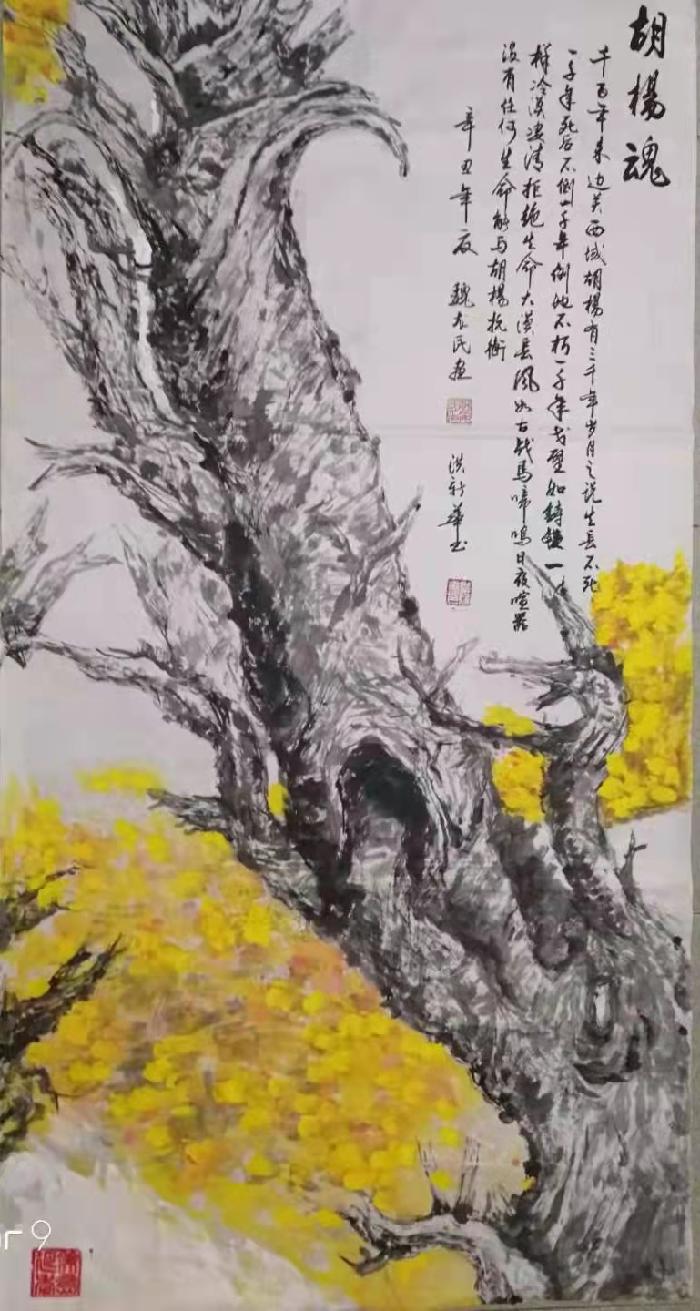 胡楊魂
千百年来边关西域胡楊有三千年岁月之说生长不死
一千年死后不倒一千年倒地不朽一千年戈壁如鋳鐵一
样冷漠凄清拒绝生命大漠長風如古战馬啼鳴日夜喧嚣
没有任何生命能与胡楊抗衡
辛丑年夜 魏 民画
洪新華书
or 9